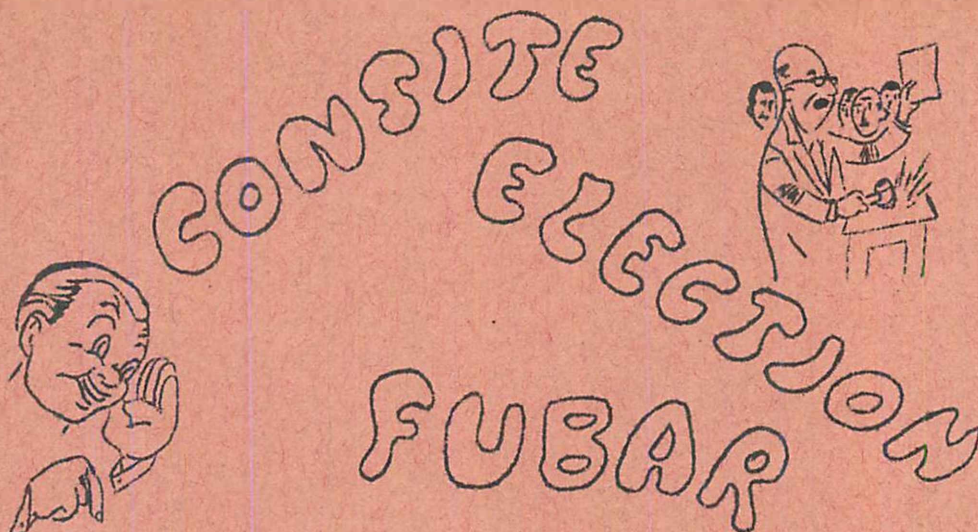 CONSITE
ELECTION
FUBAR